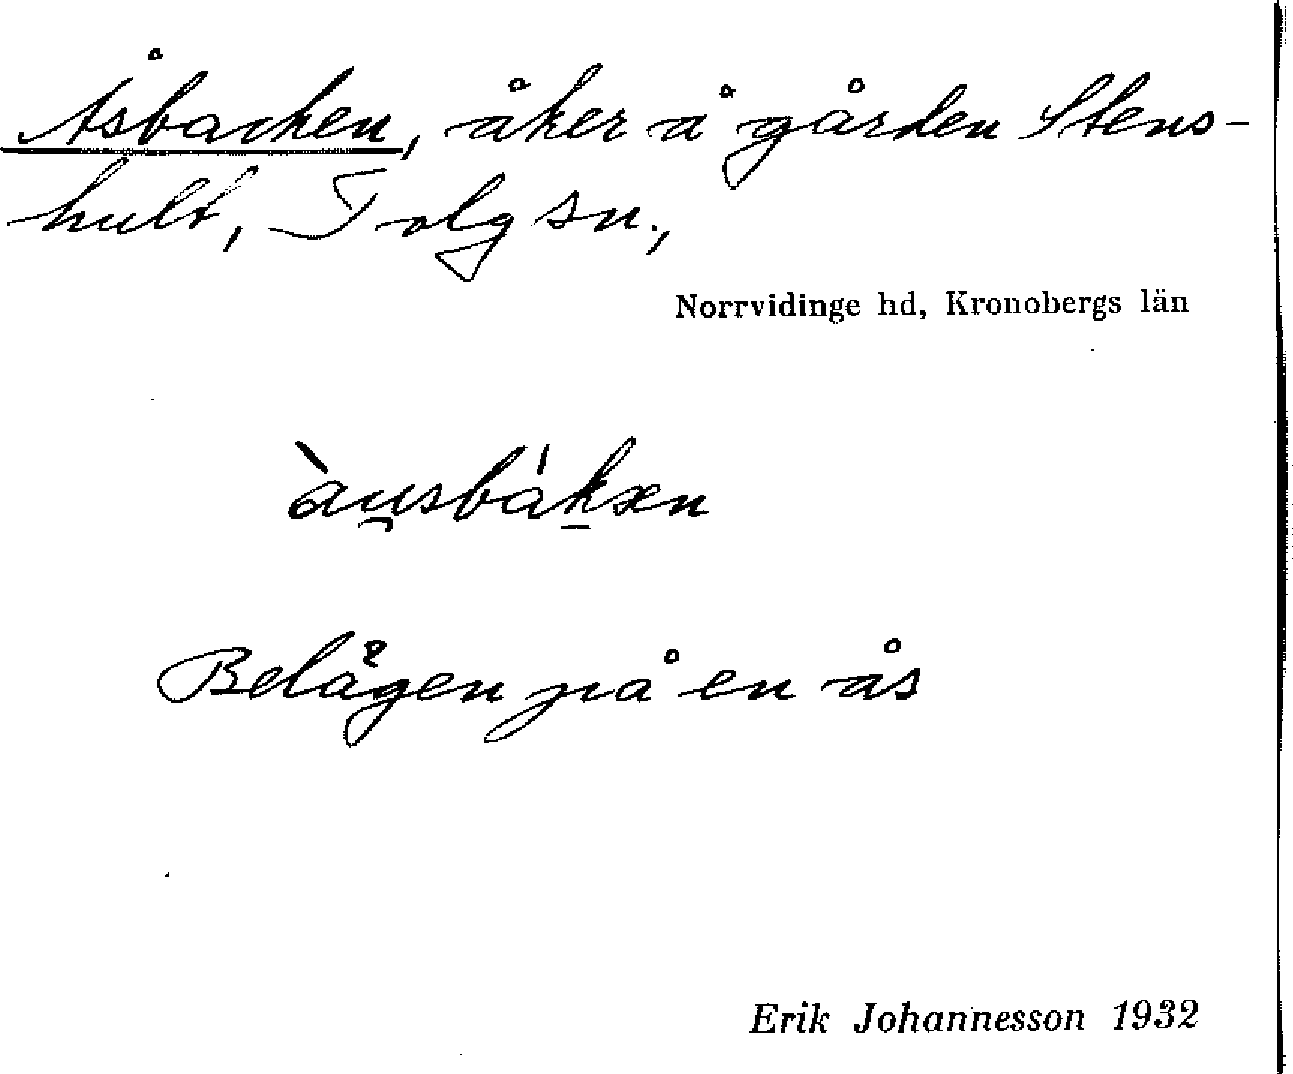 Åsbacken, åker å gården Stens-
hult, Tolg sn.,
Norrvidinge hd, Kronobergs län
àu̯sbák̠æn
Belägen på en ås
Erik Johannesson 1932